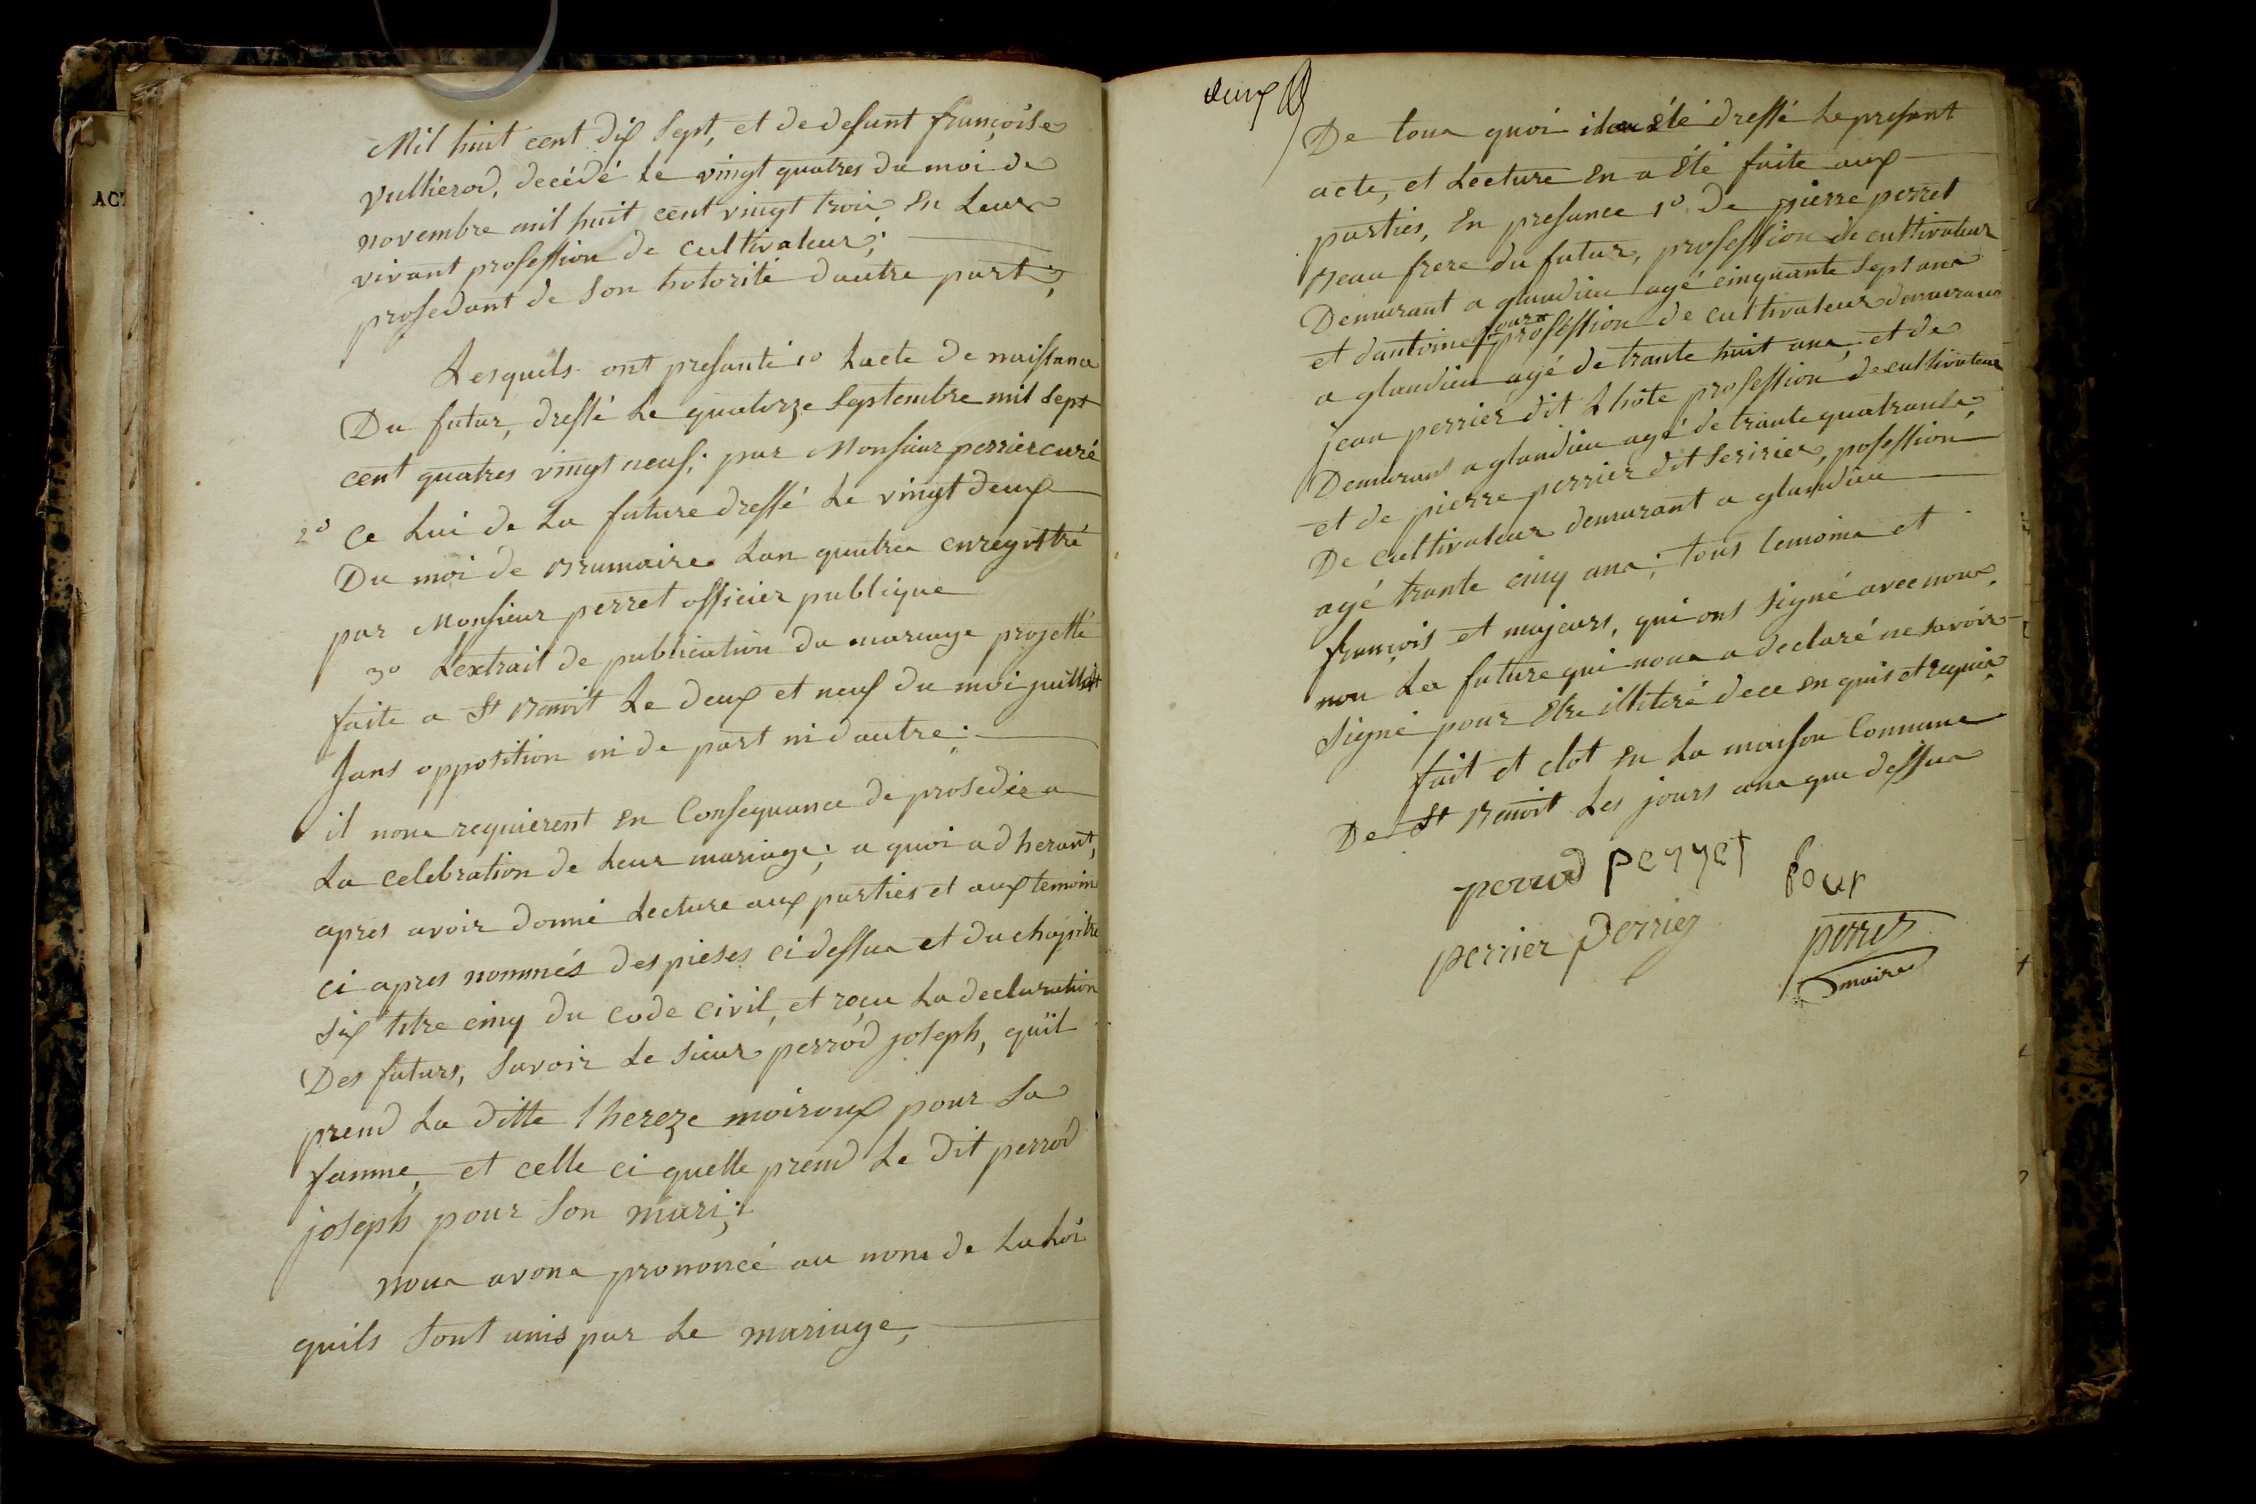 AC
Mil huit cent dix Sept, et de defunt françoise
Vulliérod, decédé le vingt quatres du moi de
novembre mil huit cent vingt trois, En Leur
vivant profession de cultivateur;
prosedant de Son hotorité dautre part;
Lesquels ont presanté 1º Lacte de naissance
Du futur, dressé Le quatorze Septembre mil Sept
cent quatres vingt neuf; par Monsieur perrier curé
2º Ce Lui de La future dressé Le vingt deux
Du moi de Brumaire Lan quatres enregistré
par Monsieur perret officier publique
3º Lextrait de publication du mariage projetté
faite a St Benoit Le deux et neuf du moi juillet
Sans opposition ni de part ni dautre;
il nous requierent En Consequance de prosedér a
La celebration de Leur mariage; a quoi adherant,
apres avoir donné Lecture aux parties et aux temoins
ci apres nommés des pieses ci dessus et du chapitre
Six titre cinq du code civil, et reçu La declaration
Des futurs, Savoir Le Sieur perrod joseph, quïl
prend La ditte Thereze moiroux pour Sa
famme, et celle ci quelle prend Le dit perrod
joseph pour Son mari;
nous avons prononcé au nom de La Loi
quils Sont unis par Le mariage,
deux
De tous quoi il en a été dressé Le presant
acte, et Lecture En a Été faite aux
parties, En presance 1º De pierre perret
Beau frere du futur, profession de cultivateur
Demurant a glandieu agé cinquante Sept ans
et dantoine four profession de cultivateur demurans
a glandieu agé de trante huit ans, et de
jean perrier dit Lhote profession de cultivateur
Demurans a glandieu agé de trante quatrans,
et de pierre perrier dit Seririer, posession
De cultivateur demurant a glandieu
agé trante cinq ans; tous temoins et
françois et majeurs, qui ont Signé avec nous,
non La future qui nous a declaré ne Savoir
Signé pour Etre illiteré de ce En quis et requis,
fait et clot En La maison Commune
De St Benoit Les jours ans que dessus
perrod perret four
perrier perrier perret
maire